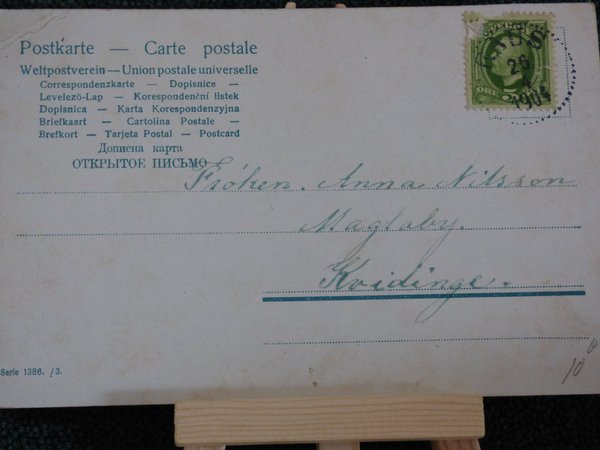 Postkarte — Carte postale
Weltpostverein — Union postale universelle
Correspondenzkarte — Dopisnice —
Levelező-Lap — Korespondenční lístek
Dopisnica — Karta Korespondenzyjna
Briefkaart — Cartolina Postale —
Brefkort — Tarjeta Postal — Postcard
Дописна карта
ОТКРЫТОЕ ПИСЬМО
26
1904
Fröken. Anna Nilsson
Maglaby.
Kvidinge.
Serie 1386. /3.
10